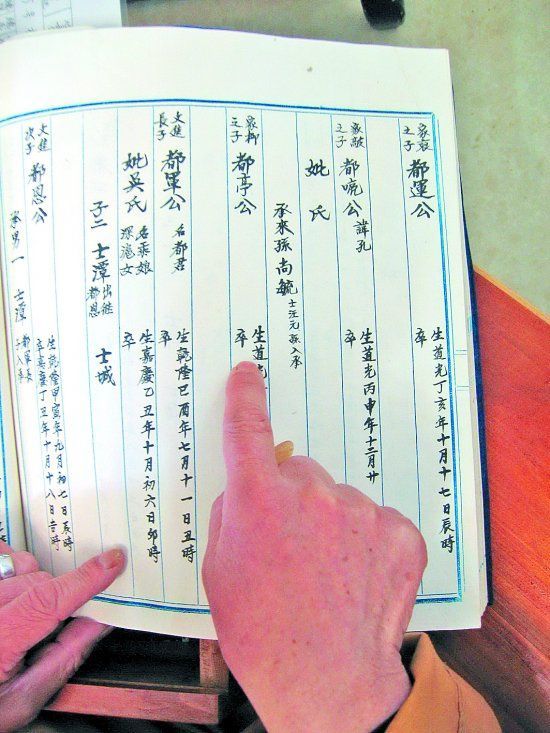 之子 都運公 生道光丁亥年十月十七日辰時
卒
之子 都喨公 諱孔 生道光丙申年十二月廿
卒
妣 氏
承來孫尚毓 士汪元孫入承
象柳之子 都亭公 生道
卒
文進長子 都軍公 名都君 生乾隆己酉年七月十一日丑時
卒
妣吳氏 名乘娘 深滬女 生嘉慶乙丑年十月初六日卯時
卒
子二 士潭 出繼都恩 士城
文進次子 都恩公 生乾隆甲寅年九月初七日辰時
卒嘉慶丁丑年十月十八日吉時
承男一 士潭 都軍長子入承